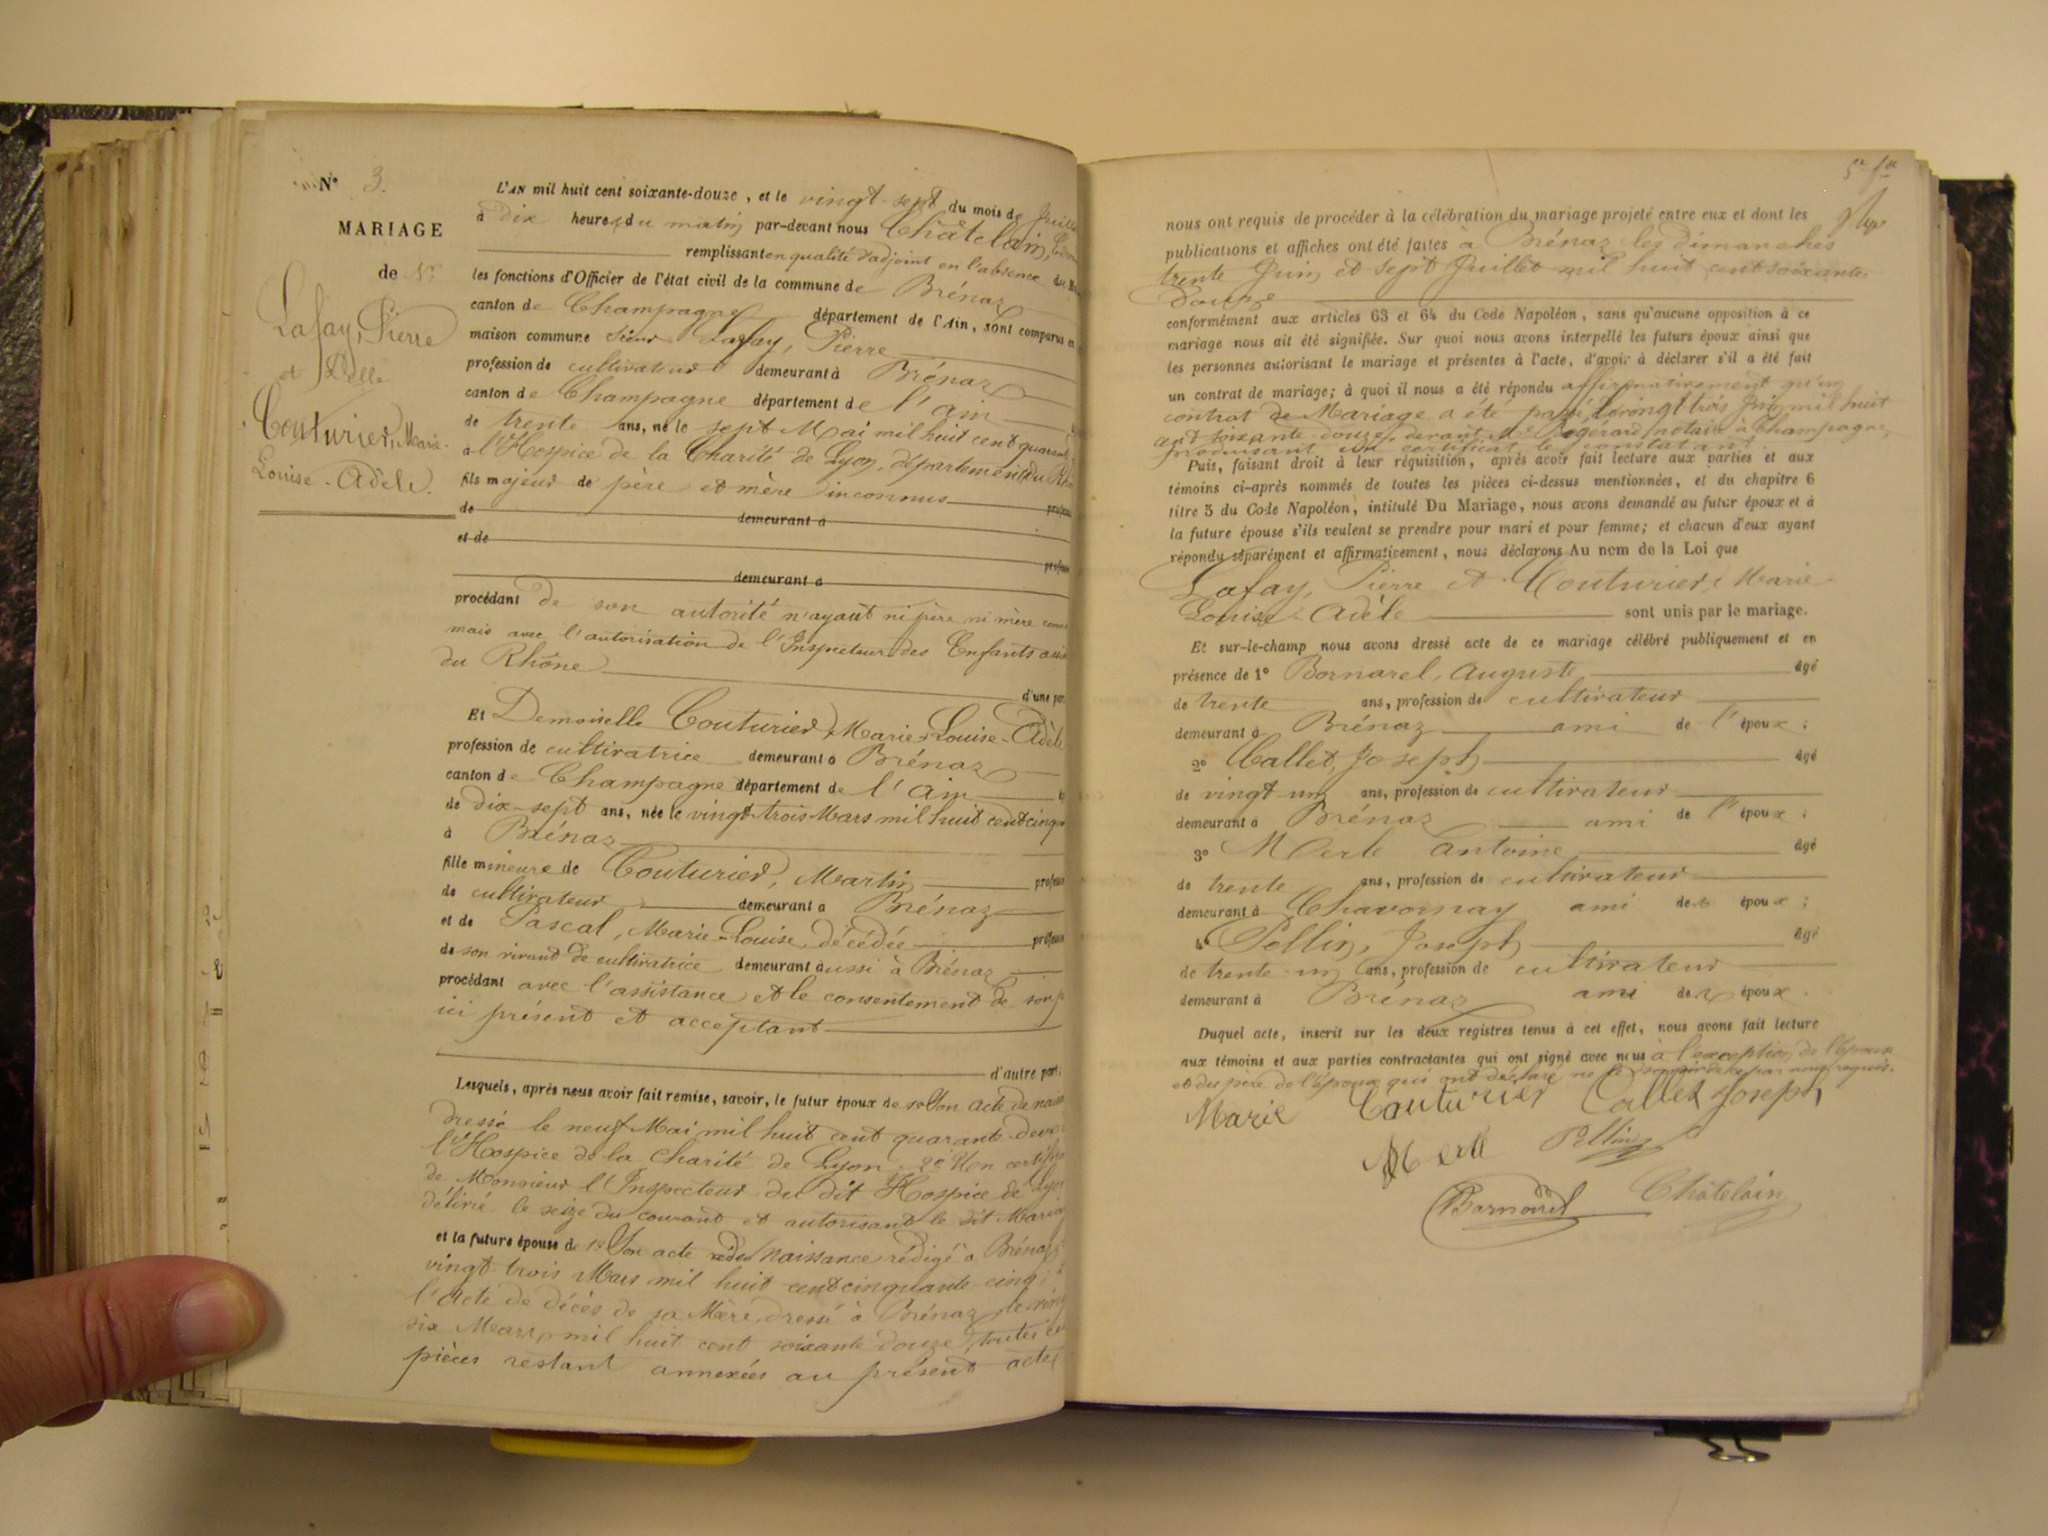 N° 3.
MARIAGE
de Mr
Lafay, Pierre
et Delle
Couturier, Marie-
Louise-Adèle.
L'AN mil huit cent soixante-douze, et le vingt-sept du mois de Juillet
à dix heures du matin par-devant nous Châtelain,
remplissant en qualité d'adjoint en l'absence du
les fonctions d'Officier de l'état civil de la commune de Brénaz
canton de Champagne département de l'Ain, sont comparus en
maison commune Sieur Lafay, Pierre
profession de cultivateur demeurant à Brénaz
canton de Champagne département de l'Ain
de trente ans, né le sept Mai mil huit cent quarante
à l'Hospice de la Charité de Lyon, département du
fils majeur de père et mère inconnus
de demeurant à
et de
demeurant à
procédant de son autorité n'ayant ni père ni mère
mais avec l'autorisation de l'Inspecteur des Enfants
du Rhône
d'une part
Et Demoiselle Couturier, Marie-Louise-Adèle
profession de cultivatrice demeurant à Brénaz
canton de Champagne département de l'Ain
de dix-sept ans, née le vingt-trois Mars mil huit cent
à Brénaz
fille mineure de Couturier, Martin
de cultivateur demeurant à Brénaz
et de Pascal, Marie-Louise, décédée
de son vivant de cultivatrice demeurant aussi à Brénaz
procédant avec l'assistance et le consentement de son
ici présent et acceptant
d'autre part;
Lesquels, après nous avoir fait remise, savoir, le futur époux de 1° Son acte de
dressé le neuf Mai mil huit cent quarante-deux
l'Hospice de la Charité de Lyon; 2° Un
de Monsieur l'Inspecteur du dit Hospice de
délivré le seize du courant et autorisant le dit
et la future épouse de 1° Son acte de naissance rédigé à Brénaz
vingt-trois Mars mil huit cent cinquante-cinq;
l'acte de décès de sa Mère, dressé à Brénaz le
six Mars mil huit cent soixante douze, toutes
pièces restant annexées au présent acte
nous ont requis de procéder à la célébration du mariage projeté entre eux et dont les
publications et affiches ont été faites à Brénaz les dimanches
trente Juin et sept Juillet mil huit cent soixante
douze
conformément aux articles 63 et 64 du Code Napoléon, sans qu'aucune opposition à ce
mariage nous ait été signifiée. Sur quoi nous avons interpellé les futurs époux ainsi que
les personnes autorisant le mariage et présentes à l'acte, d'avoir à déclarer s'il a été fait
un contrat de mariage; à quoi il nous a été répondu affirmativement qu'un
contrat de Mariage a été passé le vingt trois Juin mil huit
cent soixante-douze, devant notaire à Champagne,
produisant un certificat le constatant
Puis, faisant droit à leur réquisition, après avoir fait lecture aux parties et aux
témoins ci-après nommés de toutes les pièces ci-dessus mentionnées, et du chapitre 6
titre 5 du Code Napoléon, intitulé Du Mariage, nous avons demandé au futur époux et à
la future épouse s'ils veulent se prendre pour mari et pour femme; et chacun d'eux ayant
répondu séparément et affirmativement, nous déclarons Au nom de la Loi que
Lafay, Pierre et Couturier, Marie-
Louise-Adèle sont unis par le mariage.
Et sur-le-champ nous avons dressé acte de ce mariage célébré publiquement et en
présence de 1° Bornarel, Auguste âgé
de trente ans, profession de cultivateur
demeurant à Brénaz ami de l'époux;
2° Callet, Joseph âgé
de vingt-un ans, profession de cultivateur
demeurant à Brénaz ami de l'époux;
3° Merle Antoine âgé
de trente ans, profession de cultivateur
demeurant à Chavornay ami des époux;
4° Pellin, Joseph âgé
de trente-un ans, profession de cultivateur
demeurant à Brénaz ami des époux.
Duquel acte, inscrit sur les deux registres tenus à cet effet, nous avons fait lecture
aux témoins et aux parties contractantes qui ont signé avec nous à l'exception de l'époux
et du père de l'épouse qui ont déclaré ne le savoir de ce par nous requis.
Marie Couturier Callet Joseph
Merle Pellin
Bornarel Châtelain